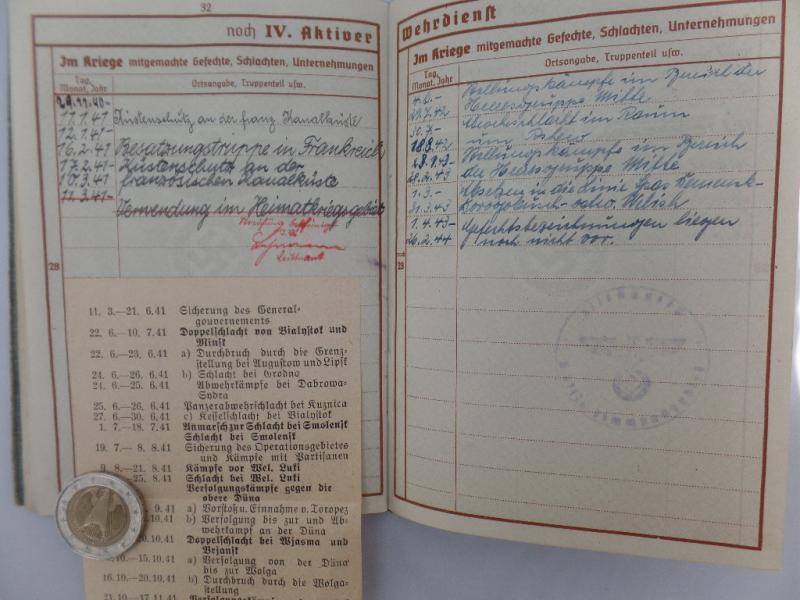 32
noch IV. Aktiver
Im Kriege mitgemachte Gefechte, Schlachten, Unternehmungen
Tag, Monat, Jahr
Ortsangabe, Truppenteil usw.
29.11.40-
11.1.41 Küstenschutz an der franz. Kanalküste
12.1.41-
16.2.41 Besatzungstruppe in Frankreich
17.2.41- Küstenschutz an der
10.3.41 französischen Kanalküste
11.3.41-
Verwendung im Heimatkriegsgebiet
Leutnant
28
11. 3.—21. 6.41 Sicherung des General-
gouvernements
22. 6.—10. 7.41 Doppelschlacht von Bialystok und
Minsk
22. 6.—23. 6.41 a) Durchbruch durch die Grenz-
stellung bei Augustow und Lipsk
24. 6.—26. 6.41 b) Schlacht bei Grodno
24. 6.—25. 6.41 Abwehrkämpfe bei Dabrowa-
Sydra
25. 6.—26. 6.41 Panzerabwehrschlacht bei Kuznica
27. 6.—30. 6.41 c) Kesselschlacht bei Bialystok
1. 7.—18. 7.41 Anmarsch zur Schlacht bei Smolensk
Schlacht bei Smolensk
19. 7.— 8. 8.41 Sicherung des Operationsgebietes
und Kämpfe mit Partisanen
9. 8.—21. 8.41 Kämpfe vor Wel. Luki
25. 8.41 Schlacht bei Wel. Luki
Verfolgungskämpfe gegen die
obere Düna
9.41 a) Vorstoß u. Einnahme v. Toropez
10.41 b) Verfolgung bis zur und Ab-
wehrkampf an der Düna
10.41 Doppelschlacht bei Wjasma und
Brjansk
—15.10.41 a) Verfolgung von der Düna
bis zur Wolga
16.10.—20.10.41 b) Durchbruch durch die Wolga-
stellung
21.10.—17.11.41
Wehrdienst
Im Kriege mitgemachte Gefechte, Schlachten, Unternehmungen
Tag, Monat, Jahr
Ortsangabe, Truppenteil usw.
Stellungskämpfe im Bereich der
29.7.42 Heeresgruppe Mitte
30.7.- Abwehrschlacht im Raum
18.8.42 um Rshew
Stellungskämpfe im Bereich
28.2.43 der Heeresgruppe Mitte
1.3.- Absetzen in die Linie Spas Demensk-
31.3.43
1.4.43- Gefechtsbezeichnungen liegen
26.2.44 noch nicht vor.
28